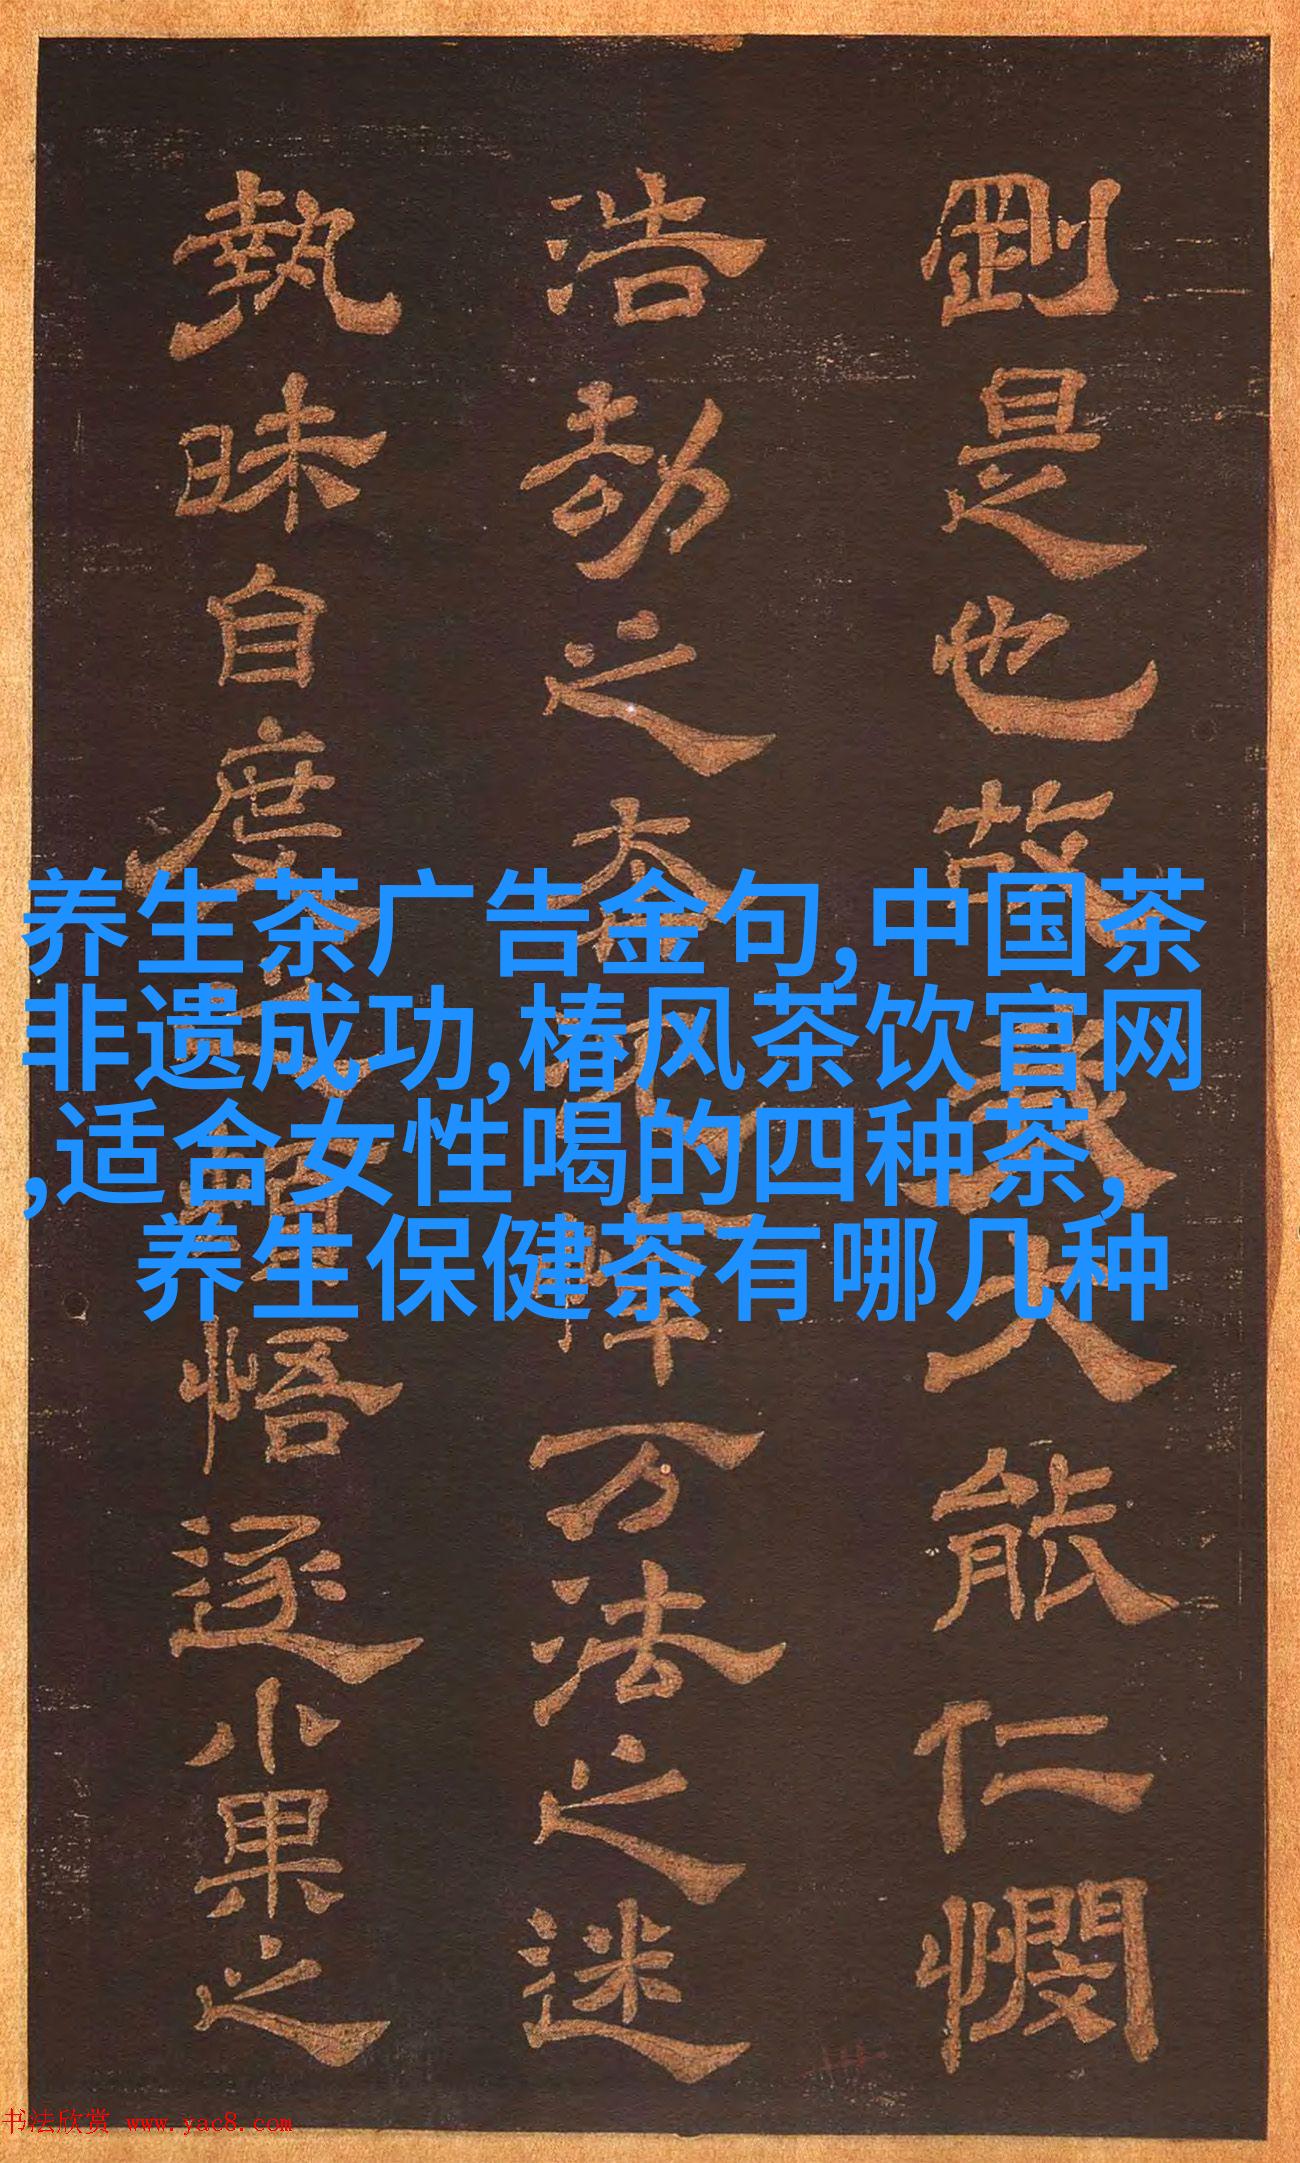 剛是也故我大能仁憫
浩劫之万法之迷
執昧自度頓悟逐小果之
养生茶广告金句,中国茶
非遗成功,椿风茶饮官网
,适合女性喝的四种茶,
养生保健茶有哪几种
书法欣赏 www.yac8.com